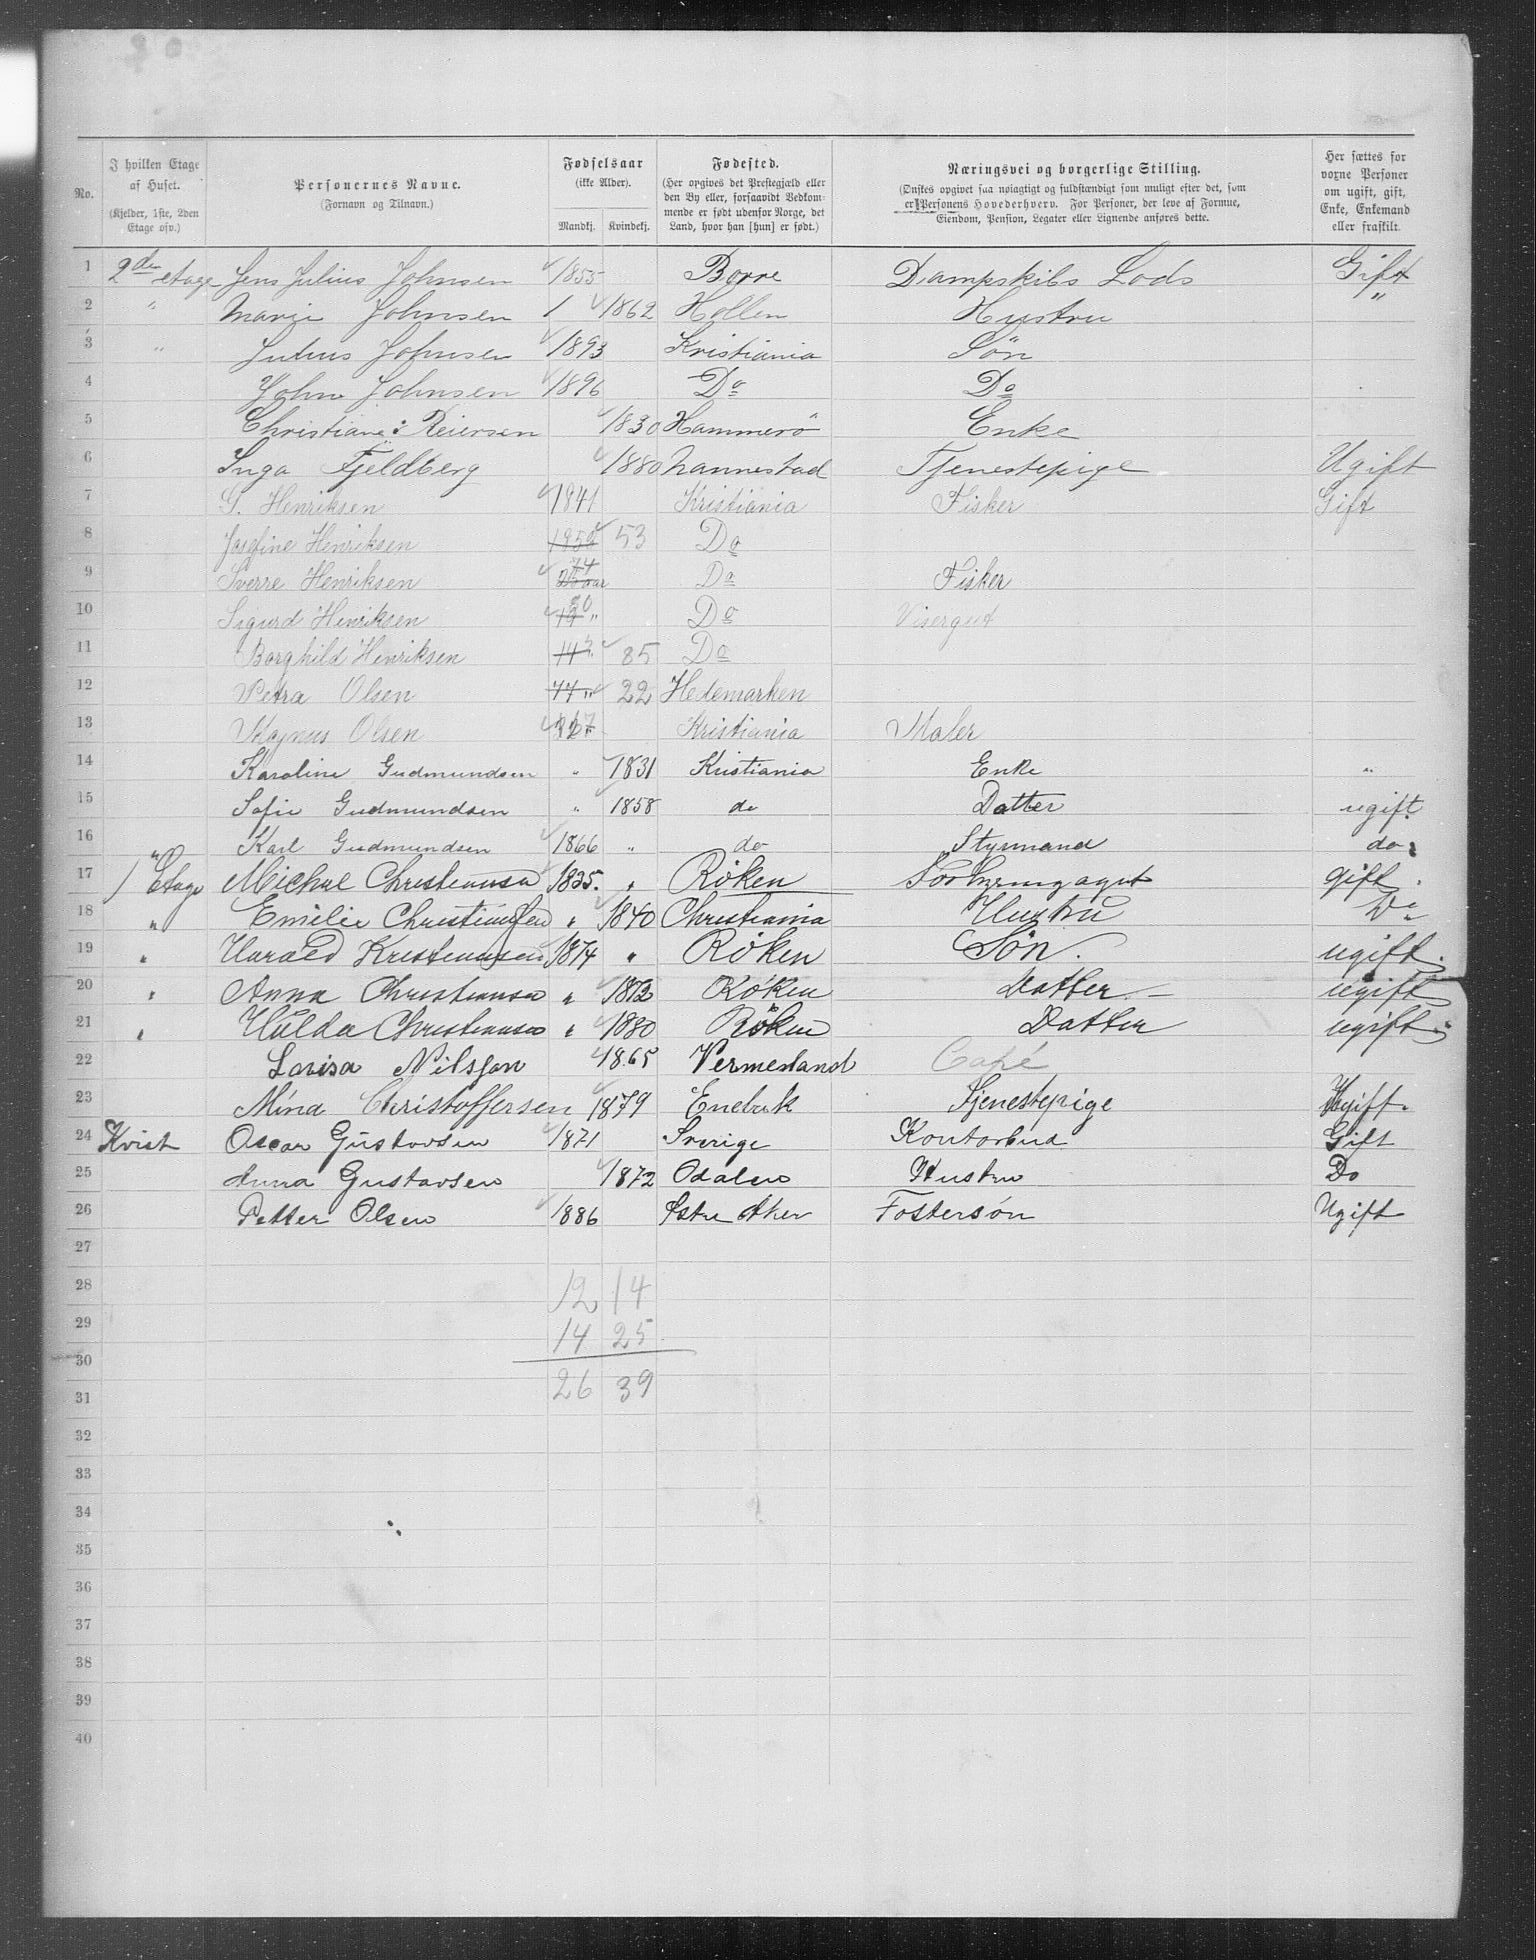 No. | I hvilken Etage af Huset. (Kjelder, 1ste, 2den Etage osv.) | Personernes Navne. (Fornavn og Tilnavn.) | Fødselsaar (ikke Alder). Mandkj. Kvindekj. | Fødested. (Her opgives det Prestegjæld eller den By eller, forsaavidt Vedkommende er født udenfor Norge, det Land, hvor han [hun] er født.) | Næringsvei og borgerlige Stilling. (Ønskes opgivet saa nøiagtigt og fuldstændigt som muligt efter det, som er Personens Hovederhverv. For Personer, der leve af Formue, Eiendom, Pension, Legater eller Lignende anføres dette. | Her sættes for voxne Personer om ugift, gift, Enke, Enkemand eller fraskilt.
1 2den etage Jens Julius Johnsen 1855 Borre Dampskibs Lods Gift
2 " Marie Johnsen 1 1862 Hollen Hustru "
3 " Julius Johnsen 1893 Kristiania Søn
4 John Johnsen 1896 Do Do
5 Christiane Reiersen 1830 Hammerö Enke
6 Inga Fjeldberg 1880 Nannestad Tjenestepige Ugift
7 G. Henriksen 1841 Kristiania Fisker Gift
8 Josefine Henriksen 53 Do
9 Sverre Henriksen 74 Do Fisker
10 Sigurd Henriksen 80 Do Visergut
11 Borghild Henriksen 85 Do
12 Petra Olsen 77 22 Hedemarken
13 Magnus Olsen 67 Kristiania Maler
14 Karoline Gudmundsen " 1831 Kristiania Enke "
15 Sofie Gudmundsen " 1858 do Datter ugift
16 Karl Gudmundsen 1866 " do Styrmand do
17 1 Etage Michael Christiansen 1835. " Röken gift
18 " Emilie Christiansen " 1840 Christiania Hustru Do
19 " Harald Kristiansen 1874 " Röken Søn. ugift.
20 " Anna Christiansen " 1872 Röken Datter ugift
21 " Hulda Christiansen " 1880 Röken Datter ugift
22 Lovisa Nilsson 1865 Vermerland Café
23 Mina Christoffersen 1879 Enebak Tjenestepige Ugift.
24 Kvist Oscar Gustavsen 1871 Sverige Kontorbud Gift
25 Anna Gustavsen 1872 Odalen Hustru Do
26 Petter Olsen 1886 Østre Aker Fostersøn Ugift
27
28 12 14
29 14 25
30
31 26 39
32
33
34
35
36
37
38
39
40